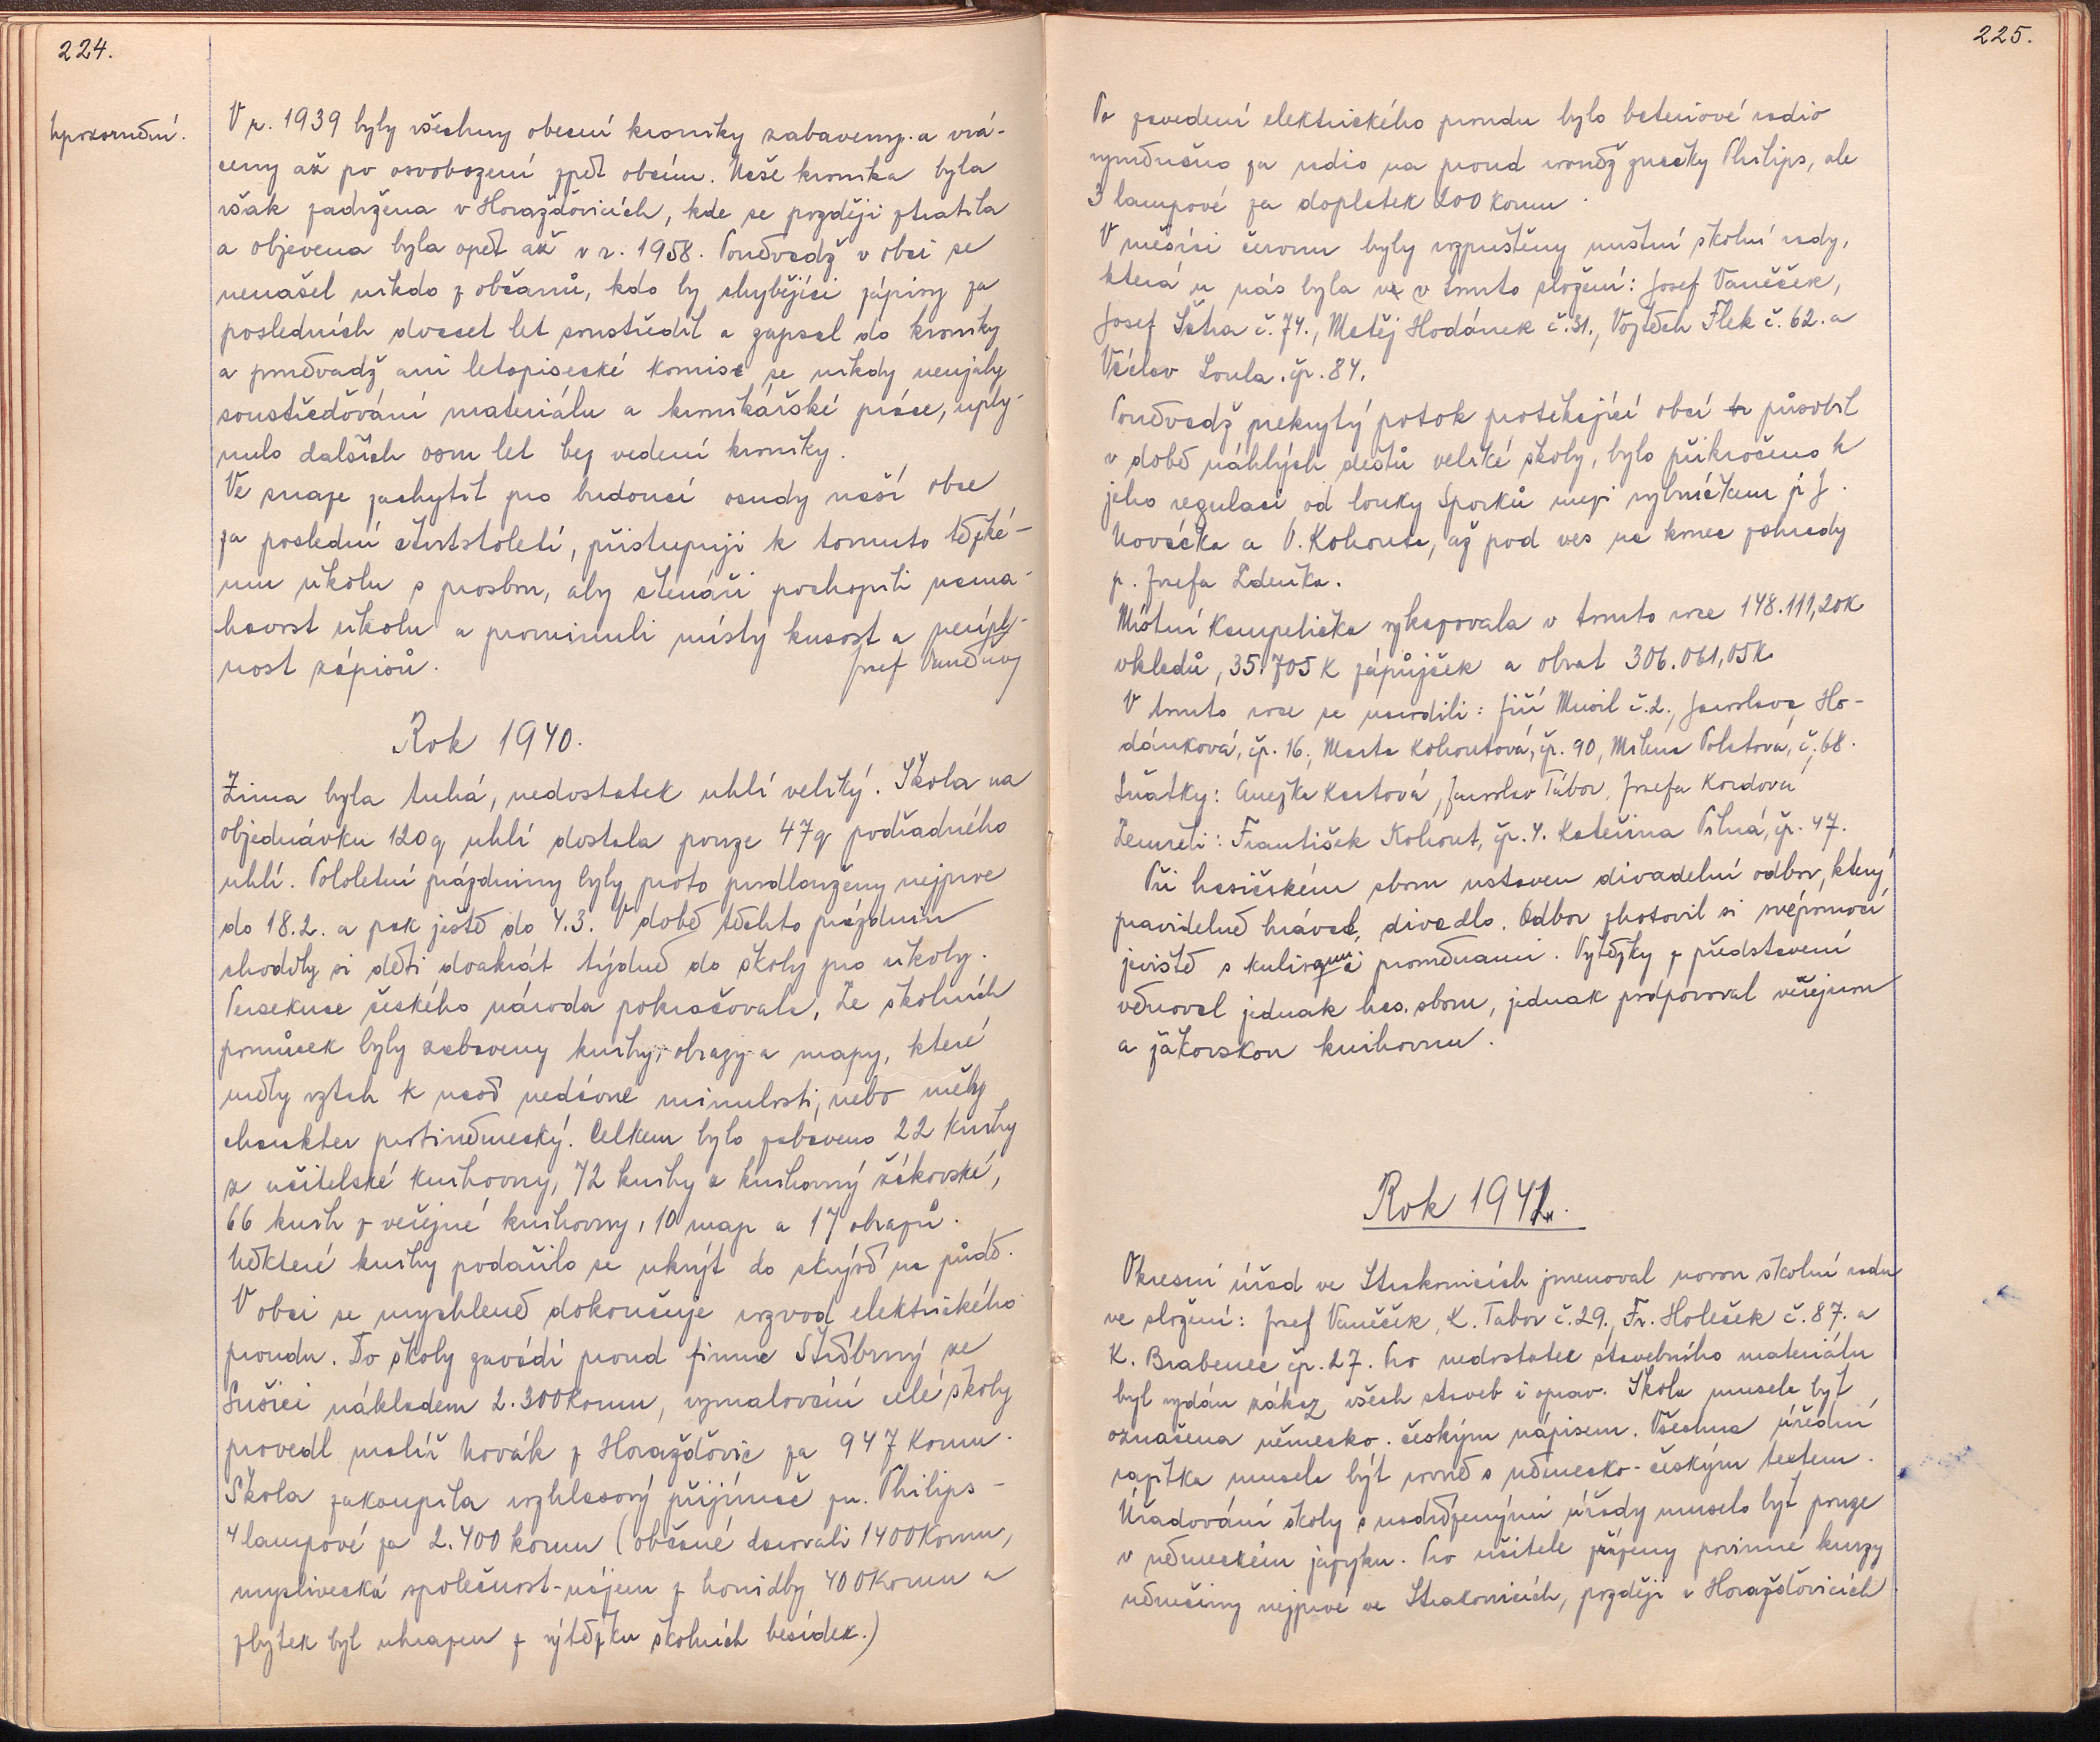 224.
Upozornění.
V r. 1939 byly všechny obecní kroniky zabaveny a vrá-
ceny až po osvobození zpět obcím. Naše kronika byla
však zadržena v Horažďovicích, kde se později ztratila
a objevena byla opět až v r. 1958. Poněvadž v obci se
nenašel nikdo z občanů, kdo by chybějící zápisy za
posledních dvacet let soustředil a zapsal do kroniky
a poněvadž ani letopisecké komise se nikdy neujaly
soustřeďování materiálu a kronikářské práce, uply-
nulo dalších osm let bez vedení kroniky.
Ve snaze zachytit pro budoucí osudy naší obce
za poslední čtvrtstoletí, přistupuji k tomuto těžké-
mu úkolu s prosbou, aby čtenáři pochopili nama-
havost úkolu a prominuli místy kusost a neúpl-
nost zápisů.
Josef
Rok 1940.
Zima byla tuhá, nedostatek uhlí veliký. Škola na
objednávku 120 q uhlí dostala pouze 47 q podřadného
uhlí. Pololetní prázdniny byly proto prodlouženy nejprve
do 18.2. a pak ještě do 4.3. V době těchto prázdnin
chodily si děti dvakrát týdně do školy pro úkoly.
Persekuce českého národa pokračovala. Ze školních
pomůcek byly zabaveny knihy, obrazy a mapy, které
měly vztah k naší nedávné minulosti, nebo měly
charakter protiněmecký. Celkem bylo zabaveno 22 knihy
z učitelské knihovny, 72 knihy z knihovny žákovské,
66 knih z veřejné knihovny, 10 map a 17 obrazů.
Některé knihy podařilo se ukrýt do skrýší na půdě.
V obci se urychleně dokončuje rozvod elektrického
proudu. Do školy zavádí proud firma Stříbrný ze
Sušici nákladem 2.300 korun, vymalování celé školy
provedl malíř Novák z Horažďovic za 947 korun.
Škola zakoupila rozhlasový přijímač zn. Philips -
4 lampové za 2.400 korun (občané darovali 1400 korun,
myslivecká společnost - nájem z honidby 400 korun a
zbytek byl uhrazen z výtěžku školních besídek.)
225.
Po zavedení elektrického proudu bylo bateriové radio
vyměněno za radio na proud rovněž značky Philips, ale
3 lampové za doplatek 200 korun.
V měsíci červnu byly rozpuštěny místní školní rady,
která u nás byla v tomto složení: Josef Vaněček,
Josef Šetra č. 74., Matěj Hodánek č. 31., Vojtěch Flek č. 62. a
Václav Loula čp. 84.
Poněvadž nekrytý potok protékající obcí působil
v době náhlých dešťů veliké škody, bylo přikročeno k
jeho regulaci od louky Šporků mezi rybníčkem p. J.
Nováčka a V. Kohouta, až pod ves na konec zahrady
p. Josefa Zdeňka.
Místní Kampelička vykazovala v tomto roce 148.111,20 K
vkladů, 35.705 K zápůjček a obrat 306.061,05 K.
V tomto roce se narodili: Jiří Musil č. 2., Jaroslava Ho-
dánková, čp. 16, Marta Kohoutová, čp. 90, Milena Polatová, č. 68.
Sňatky: Anežka Kartová, Jaroslav Tábor, Josefa Kordová
Zemřeli: František Kohout, čp. 4. Kateřina Pilná, čp. 47.
Při hasičském sboru ustaven divadelní odbor, který
pravidelně hrával divadlo. Odbor zhotovil si svépomocí
jeviště s kulisami proměnami. Výtěžky z představení
věnoval jednak has. sboru, jednak podporoval veřejnou
a žákovskou knihovnu.
Rok 1941.
Okresní úřad ve Strakonicích jmenoval novou školní radu
ve složení: Josef Vaněček, K. Tabor č. 29., Fr. Holeček č. 87. a
K. Brabenec čp. 27. Pro nedostatek stavebního materiálu
byl vydán zákaz všech staveb i oprav. Škola musela být
označena německo - českým nápisem. Všechna úřední
razítka musela být rovně s německo-českým textem.
Úřadování školy s nadřízenými úřady muselo být pouze
v německém jazyku. Pro učitele zřízeny povinné kurzy
němčiny nejprve ve Strakonicích, později v Horažďovicích